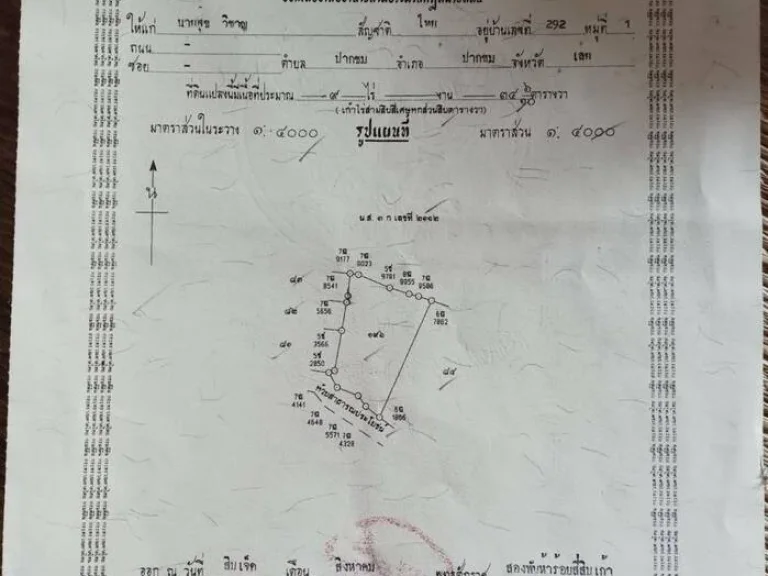 ให้แก่ นายสุข วิชาญ สัญชาติ ไทย อยู่บ้านเลขที่ 292 หมู่ที่ 1
ถนน –
ซอย – ตำบล ปากชม อำเภอ ปากชม จังหวัด เลย
ที่ดินแปลงนี้มีเนื้อที่ประมาณ ๙ ไร่ – งาน ๓๔ ๖/๑๐ ตารางวา
(เก้าไร่สามสิบสี่เศษหกส่วนสิบตารางวา)
มาตราส่วนในระวาง ๑: ๔๐๐๐ รูปแผนที่ มาตราส่วน ๑: ๔๐๐๐
น
น.ส. ๓ ก เลขที่ ๒๑๓๒
9177
9023
9781
9955
9586
7862
๘๓
8541
๘๒
5656
๘๑
3566
2850
๑๙๖
๘๔
ห้วยสาธารณประโยชน์
4141
4648
5571
4328
1806
ออก ณ วันที่ สิบเจ็ด เดือน สิงหาคม พุทธศักราช สองพันห้าร้อยสี่สิบเก้า